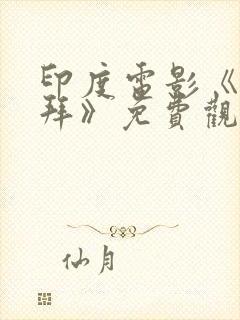 印度電影《
拜》免費觀
仙月